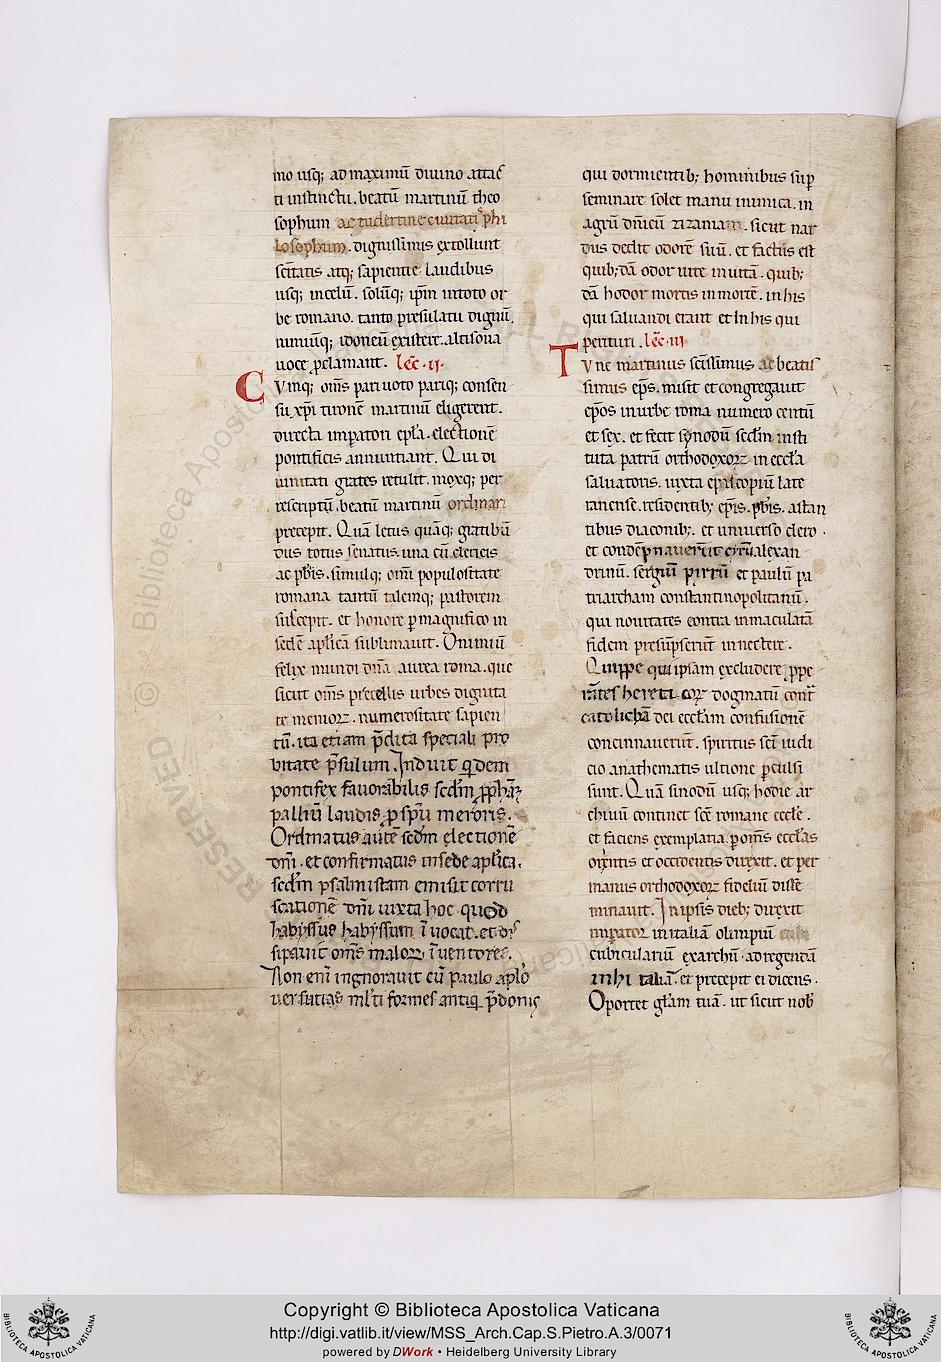 mo usq; ad maximū diuino attac
ti instinctu. beatū martinū theo
sophum ac tudertine ciuitatis phi
losophum. dignissimis extollunt
scītatis atq; sapientie laudibus
usq; in celū. solūq; ipm in toto or
be romano. tanto presulatu dignū.
nimiūq; idoneū existere. altisona
uoce ꝓclamant. lēc ·ii·
CVmq; om̄s pari uoto pariq; consen
su xpi tironē martinū eligerent.
directa impatori epl̄a. electionē
pontificis annuntiant. Qui di
uinitati grates retulit. moxq; per
rescriptū. beatū martinū ordinari
precepit. Quā letus quāq; gratibū
dus totus senatus. una cū clericis
ac pb̄is. simulq; om̄i populositate
romana tantū talemq; pastorem
suscepit. et honore ꝑ magnifico in
sedē aplicā sublimauit. O nimiū
felix mundi dn̄a aurea roma. que
sicut om̄s precellis urbes dignita
te memorꝝ. numerositate sapien
tū. ita etiam p̄dita speciali pro
bitate p̄sulum. Induit q̇dem
pontifex fauorabilis sedm̄ ꝓph̄āꝝ
palliū laudis ꝓ spū meroris.
Ordinatus autē scdm̄ electionē
dn̄i. et confirmatus in sede aplica.
scdm̄ psalmistam emisit corru
scationē dn̄i iuxta hoc quod
habyssus habyssum ī uocat. et dis
sipauit om̄s malorꝝ īuentores.
Non enī ingnorauit cū paulo aplo
uersutias ml̄ti formes antiq̇ p̄donis
qui dormientib; hominibus sup̄
seminare solet manu inimica. in
agrū dn̄icū zizaniam. sicut nar
dus dedit odorē suū. et factus est
quib;dā odor uite in uitā. quib;
dā hodor mortis in mortē. in his
qui saluandi erant et in his qui
perituri. lēc ·iii·
TVnc martinus scīssimus ac beatis
simus ep̄s. misit et congregauit
ep̄os in urbe roma numero centū
et sex. et fecit synodū scdm̄ insti
tuta patrū orthodoxorꝝ in eccl̄a
saluatoris. iuxta episcopiū late
ranense. residentib; ep̄is. pb̄is. astan
tibus diaconib;. et uniuerso clero.
et condēpnauerūt cyrū alexan
drinū. sergiū pirrū et paulū pa
triarcham constantinopolitanū.
qui nouitates contra inmaculatā
fidem presūpserūt innectere.
Quippe qui ipsam excludere ꝓpe
rātes hereticorꝝ dogmatū cont̄
catolichā dei eccl̄am confusionē
concinnauerūt. spiritus scī iudi
cio anathematis ultione ꝑculsi
sunt. Quā sinodū usq; hodie ar
chiuū continet scē romane eccl̄e.
et faciens exemplaria. ꝑ om̄s eccl̄as
orīntis et occidentis direxit. et per
manus orthodoxorꝝ fideliū disse
minauit. In ipsis dieb; direxit
imꝑator in italiā olimpiū cubi
cubiculariū exarchū. ad regendā
in hi taliā. et precepit ei dicens.
Oportet gl̄am tuā. ut sicut nob̄
Copyright © Biblioteca Apostolica Vaticana
http://digi.vatlib.it/view/MSS_Arch.Cap.S.Pietro.A.3/0071
powered by DWork • Heidelberg University Library
BIBLIOTECA APOSTOLICA VATICANA
BIBLIOTECA APOSTOLICA VATICANA